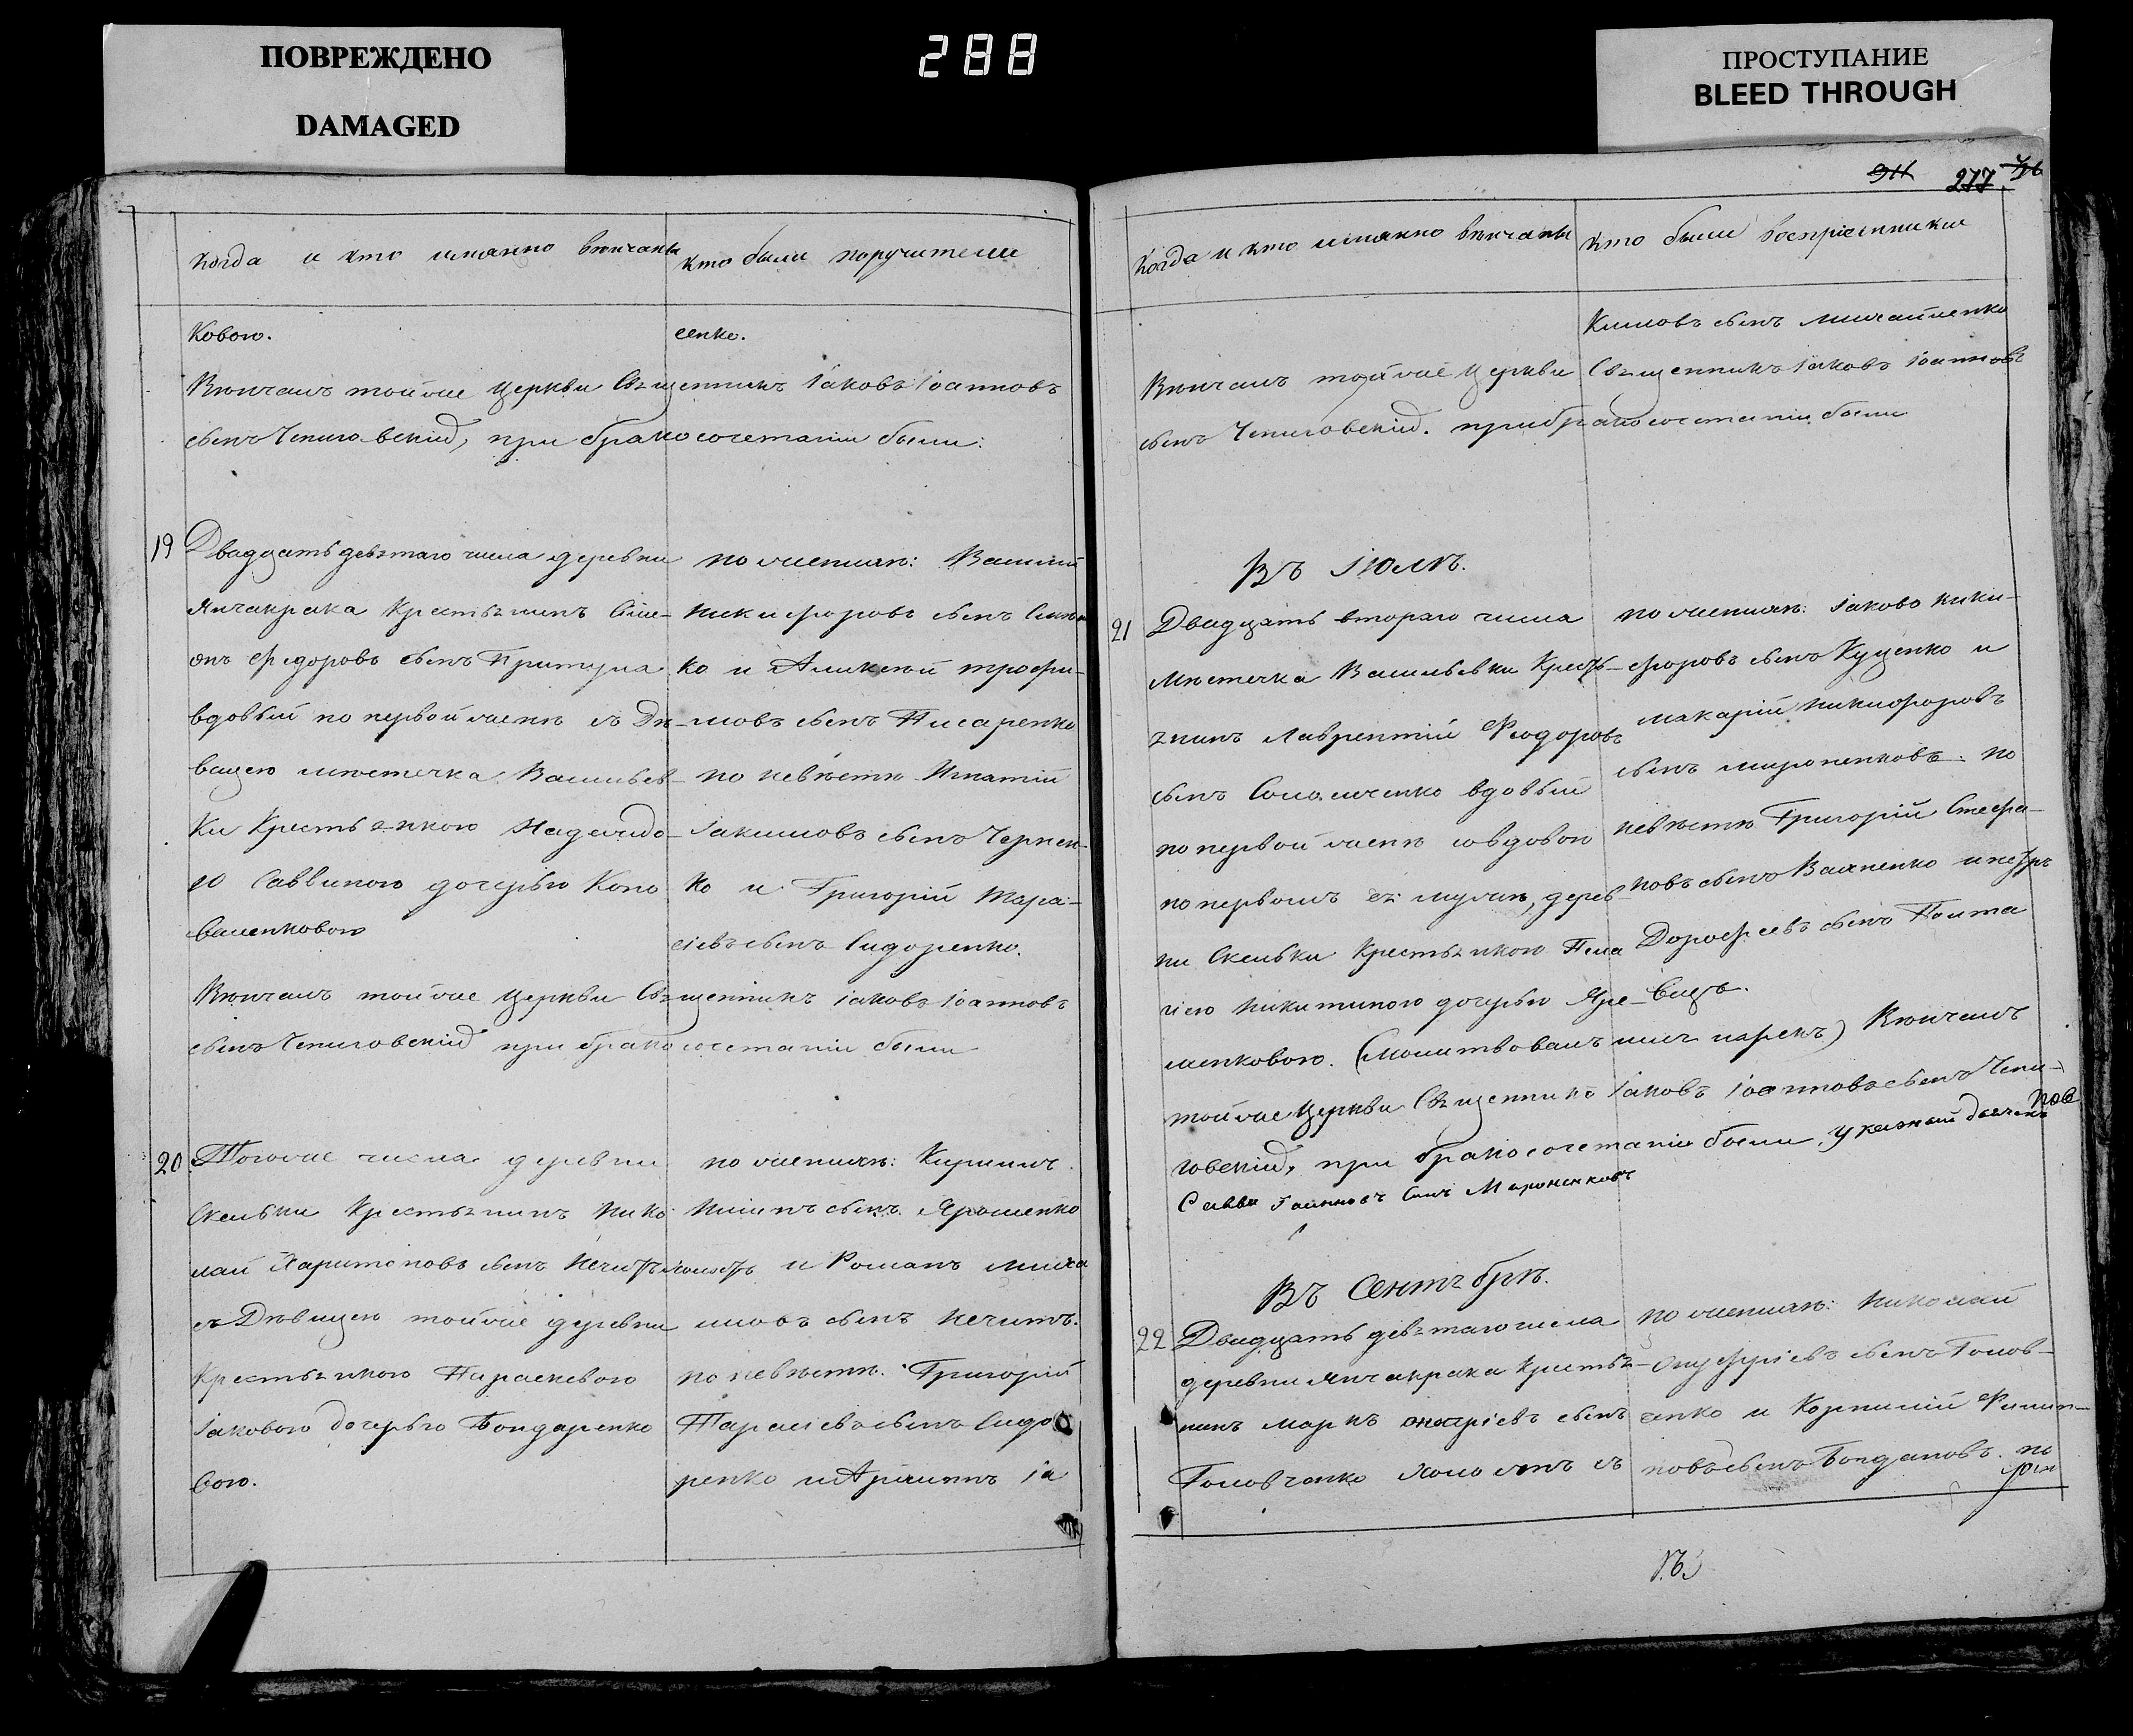 ПОВРЕЖДЕНО
DAMAGED
288
ПРОСТУПАНИЕ
BLEED THROUGH
Когда и кто имянно вѣнчаны
Кто были поручители
Ковою.
сенко.
Вѣнчалъ тойже церкви Священникъ Іаковъ Іоанновъ
сынъ Чепиговскій, при бракосочетаніи были:
19 Двадцать девятаго числа деревни
Янчакрака Крестьянинъ Сѵме-
онъ Ѳедоровъ сынъ Притула
вдовый по первой женѣ съ Дѣ-
вицею мѣстечка Васильев-
ки Крестьянкою Надеждо-
ю Саввиною дочерью Коно
валенковою
по женихѣ: Василій
Никифоровъ сынъ
ко и Алексѣй Трофи-
мовъ сынъ Писаренко
по невѣстѣ Игнатій
Іакимовъ сынъ Чернен-
ко и Григорій Тара-
сіевъ сынъ Сидоренко.
Вѣнчалъ тойже церкви Священникъ Іаковъ Іоанновъ
сынъ Чепиговскій при бракосочетаніи были
20 Тогоже числа деревни
Скельки Крестьянинъ Нико
лай Харитоновъ сынъ Нечитъ холостъ
съ Дѣвицею тойже деревни
Крестьянкою Параскевою
Іаковою дочерью Бондаренко
вою.
по женихѣ: Кириллъ
Ниловъ сынъ Ярошенко
и Романъ Миха
иловъ сынъ Нечитъ.
по невѣстѣ: Григорій
Тарасіевъ сынъ Сидо
ренко и Іа
277
Когда и кто имянно вѣнчаны
Кто были воспріемники
Кимовъ сынъ Михайленко
Вѣнчалъ тойже церкви Священникъ Іаковъ Іоанновъ
сынъ Чепиговскій. при бракосочетаніи были
Въ Іюлѣ.
21 Двадцать втораго числа
мѣстечка Васильевки Кресть-
янинъ Лаврентій Ѳеодоровъ
сынъ вдовый
по первой женѣ со вдовою
по первомъ ея мужѣ, дерев-
ни Скельки Крестьянкою Пела
гіею Никитиною дочерью Яре-
менковою. (Молитвовалъ имя нарекъ) Вѣнчалъ
по женихѣ: Іаковъ Ники-
форовъ сынъ Куценко и
Макарій Никифоровъ
сынъ Мироненковъ. по
невѣстѣ Григорій Стефа-
новъ сынъ и Петръ
Дороѳеевъ сынъ Полта
вецъ.
тойже церкви Священникъ Іаковъ Іоанновъ сынъ Чепи-
говскій, при бракосочетаніи были указный дьячекъ
Савва Іоанновъ сынъ Мироненковъ
Въ Сентябрѣ.
22 Двадцать девятаго числа
деревни Янчакрака Крестья-
нинъ Маркъ сынъ
Головченко холостъ съ
по женихѣ: Николай
Онуфріевъ сынъ Голов-
ченко и Корнилій Филип-
повъ сынъ Богдановъ. по